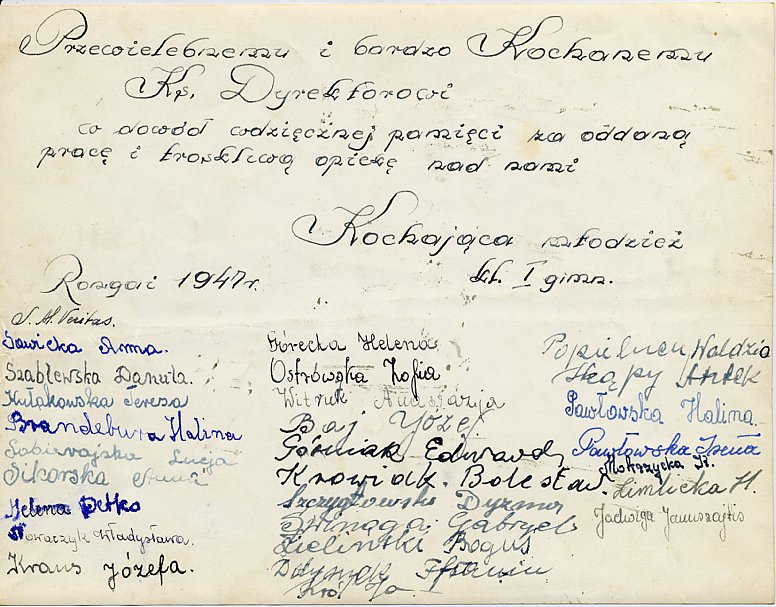 Przewielebnemu i bardzo Kochanemu
Ks. Dyrektorowi
w dowód wdzięcznej pamięci za oddaną
pracę i troskliwą opiekę nad nami
Kochająca młodzież
Rongai 1947 r.
kl. I gimn.
S. M. Veritas.
Sawicka Anna.
Szablewska Danuta.
Kułakowska Teresa
Brandebura Halina
Łucja
Sikorska Anna
Helena Petko
Władysława.
Kraus Józefa.
Górecka Helena
Ostrówska Zofia
Witruk Anastazja
Baj Józef
Górniak Edward
Krowiak Bolesław
Dyzma
Gabryel
Zieliński Boguś
Król
Popielnicki Waldzio
Skąpy Antek
Pawłowska Halina.
Pawłowska Irena
Mokrzycka
H.
Jadwiga Januszajtis